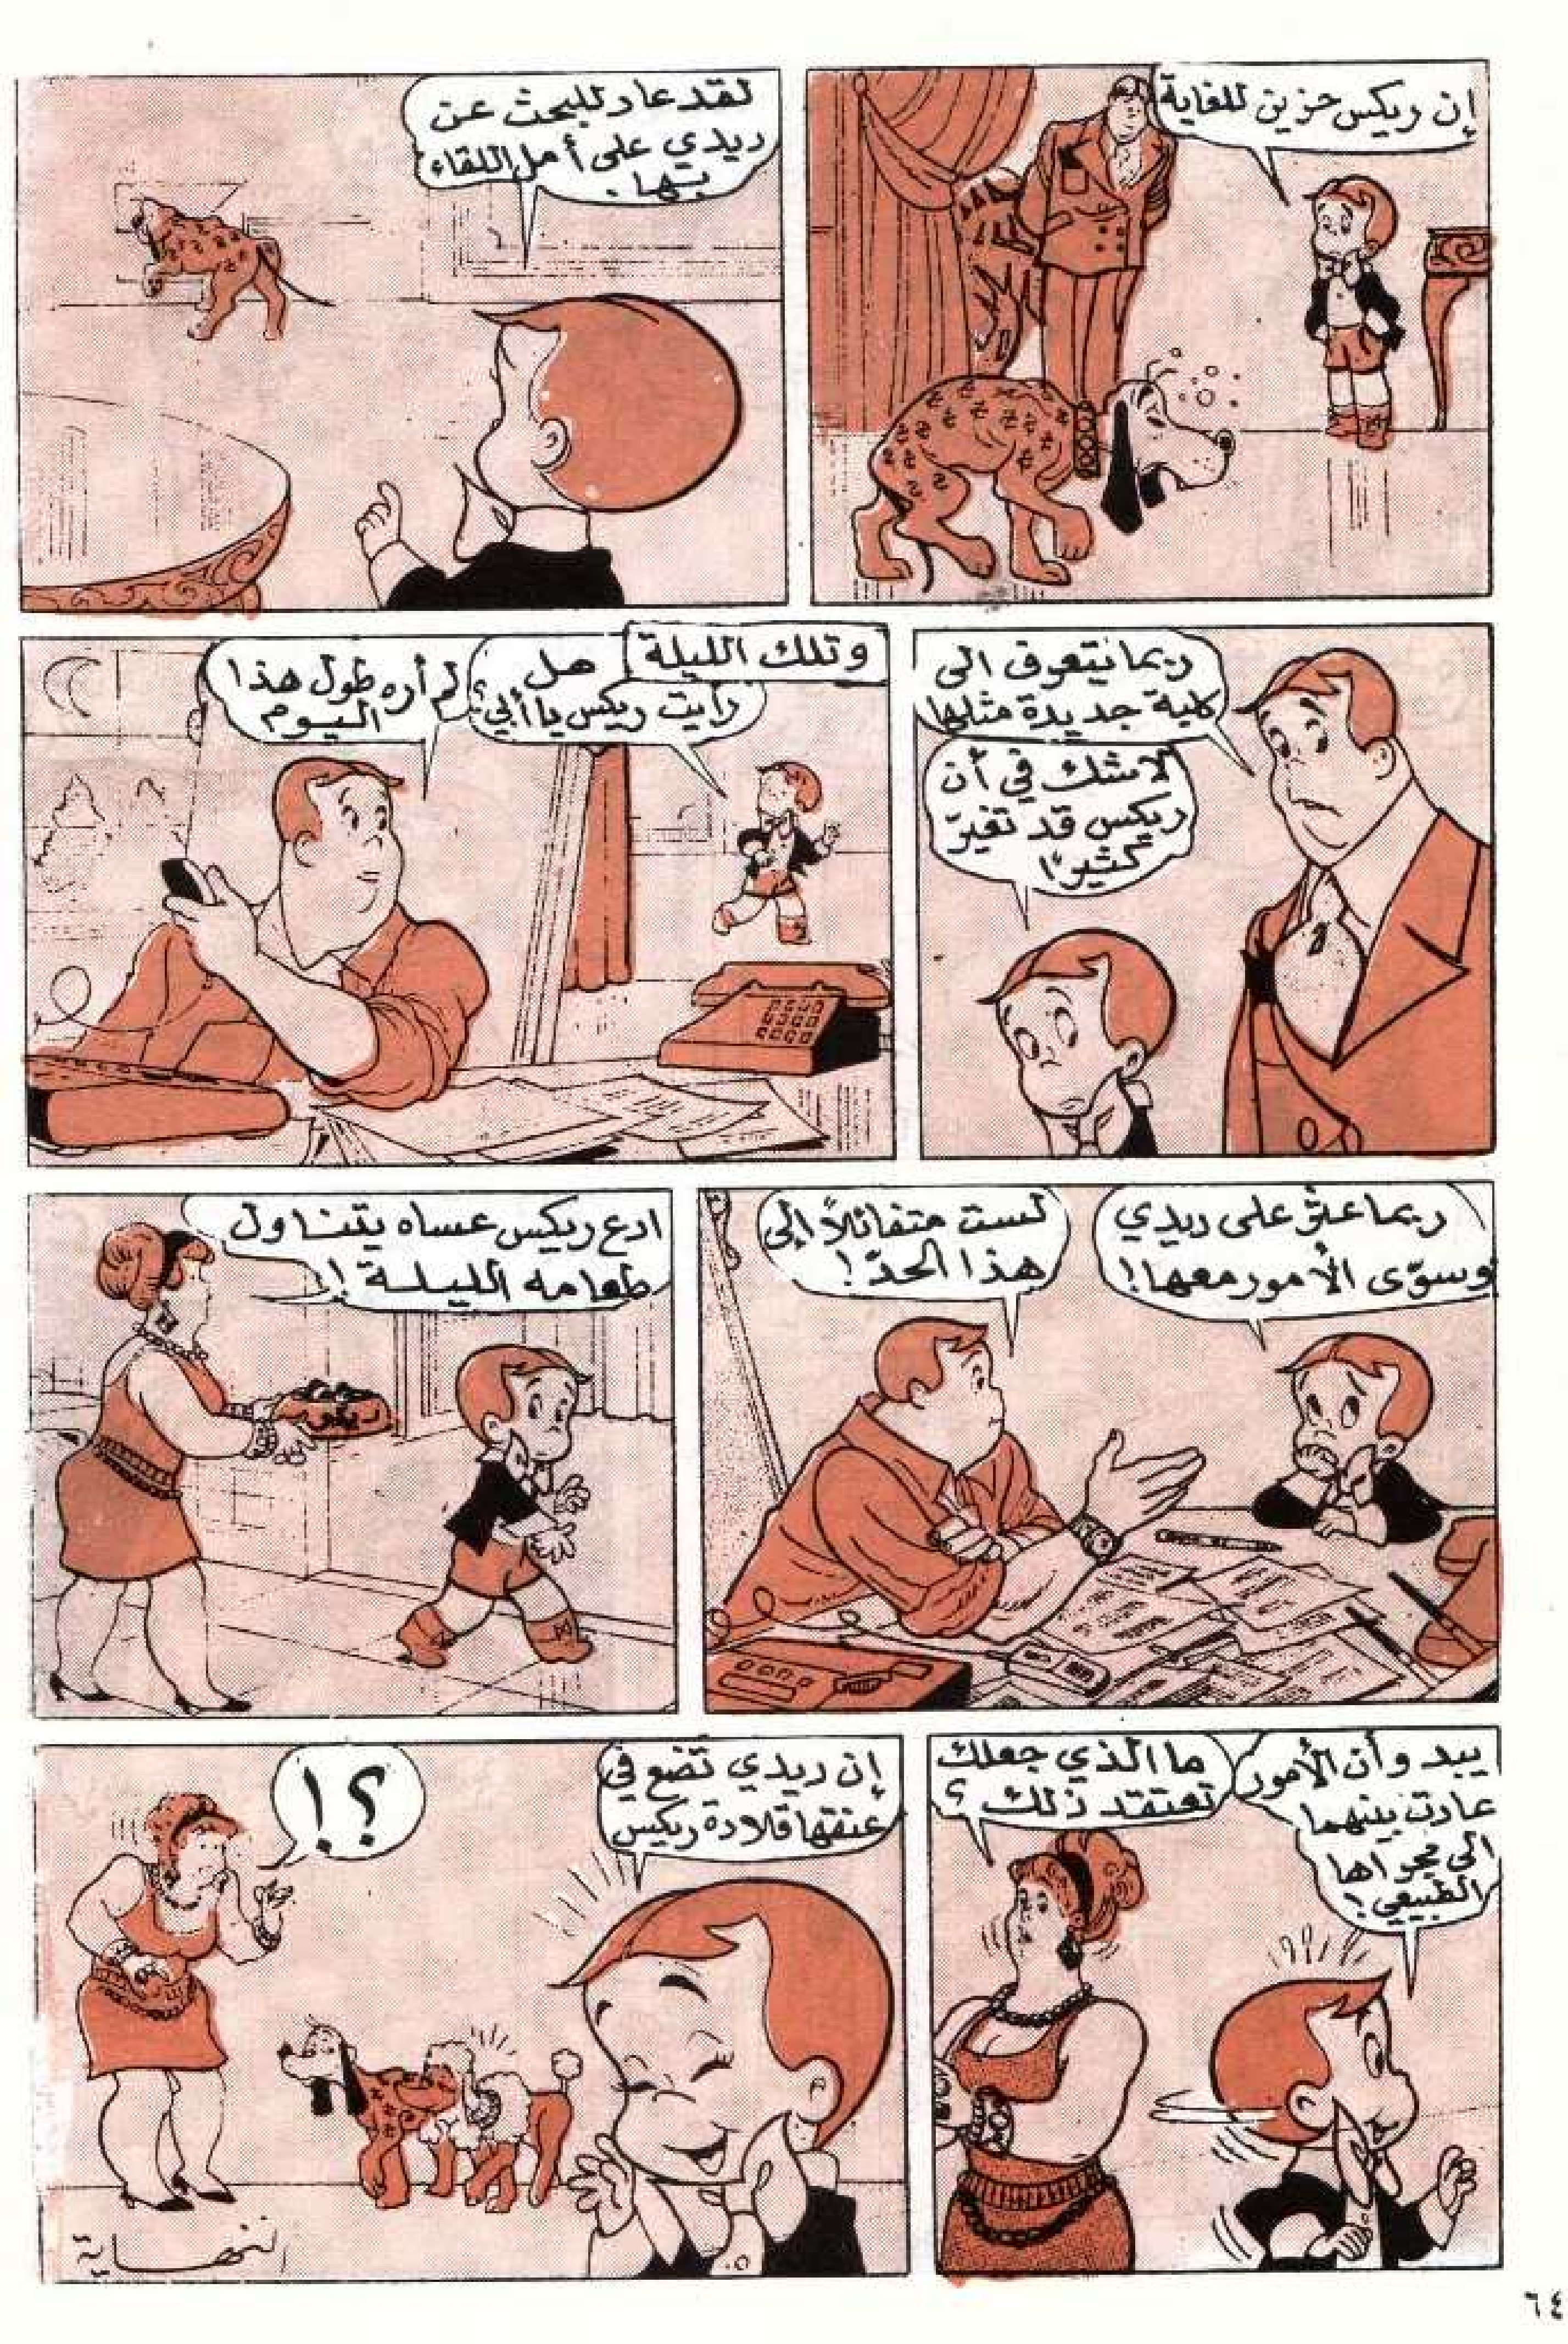 إن ريكس حزين للغاية
لقد عاد للبحث عن
ريدي على أمل اللقاء
بها.
ربما نتعرف الى
كلبة جديدة مثلها
لاشك في أن
ريكس قد تغير
كثيرًا
وتلك الليلة
هل
رايت ريكس يا أبي؟
لم أره طول هذا
اليوم
ربما عثر على ريدي
وسوّى الأمور معها!
لست متفائلاً إلى
هذا الحدّ!
ادع ريكس عساه يتناول
طعامه الليلة!
ريكس
يبدو أن الأمور
عادت بينهما
الى مجراها
الطبيعي!
ما الذي جعلك
تعتقد ذلك؟
إن ريدي تضع في
عنقها قلادة ريكس
؟!
النهاية
٦٤